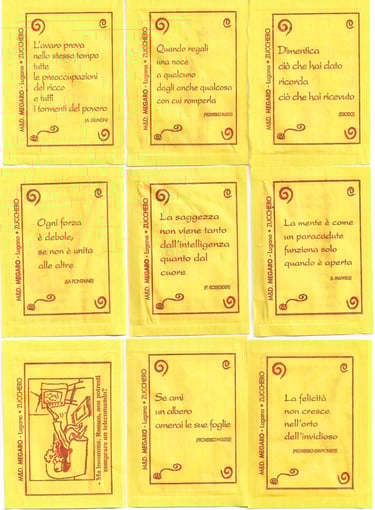 M&D. MEGARO - Lugano • ZUCCHERO
L'avaro prova
nello stesso tempo
tutte
le preoccupazioni
del ricco
e tutti
i tormenti del povero
M&D. MEGARO - Lugano • ZUCCHERO
Quando regali
una noce
a qualcuno
dagli anche qualcosa
con cui romperla
(PROVERBIO RUSSO)
M&D. MEGARO - Lugano • ZUCCHERO
Dimentica
ciò che hai dato
ricorda
ciò che hai ricevuto
M&D. MEGARO - Lugano • ZUCCHERO
Ogni forza
è debole,
se non è unita
alle altre
(LA FONTAINE)
M&D. MEGARO - Lugano • ZUCCHERO
La saggezza
non viene tanto
dall'intelligenza
quanto dal
cuore
(P. ROSEGGER)
M&D. MEGARO - Lugano • ZUCCHERO
La mente è come
un paracadute
funziona solo
quando è aperta
M&D. MEGARO - Lugano • ZUCCHERO
- Ma insomma, Romeo, non potresti
comprare un telecomando?
M&D. MEGARO - Lugano • ZUCCHERO
Se ami
un albero
amerai le sue foglie
M&D. MEGARO - Lugano • ZUCCHERO
La felicità
non cresce
nell'orto
dell'invidioso
(PROVERBIO GIAPPONESE)